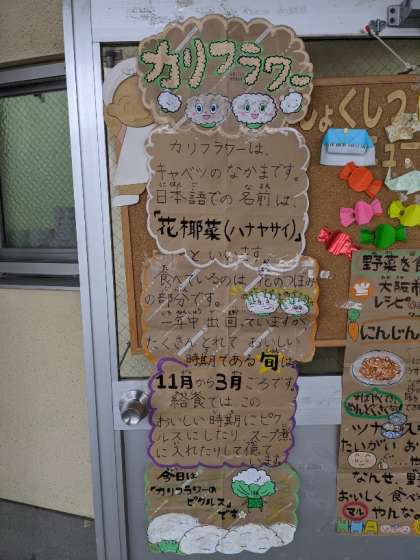 カリフラワー
カリフラワーは、
キャベツのなかまです。
日本語での名前は、
「花椰菜(ハナヤサイ)」
といいます。
食べているのは花のつぼみ
の部分です。
一年中出回っていますが、
たくさんとれておいしい
時期である旬は、
11月から3月ごろです。
給食ではこの
おいしい時期にピク
ルスにしたり、スープ煮
に入れたりして使
います。
今日は
「カリフラワーの
ピクルス」
です
野菜を
大阪市
レシピ
にんじん
ツナ
たいがい
なんせ、野
おいしく食べ
マル
やんな。